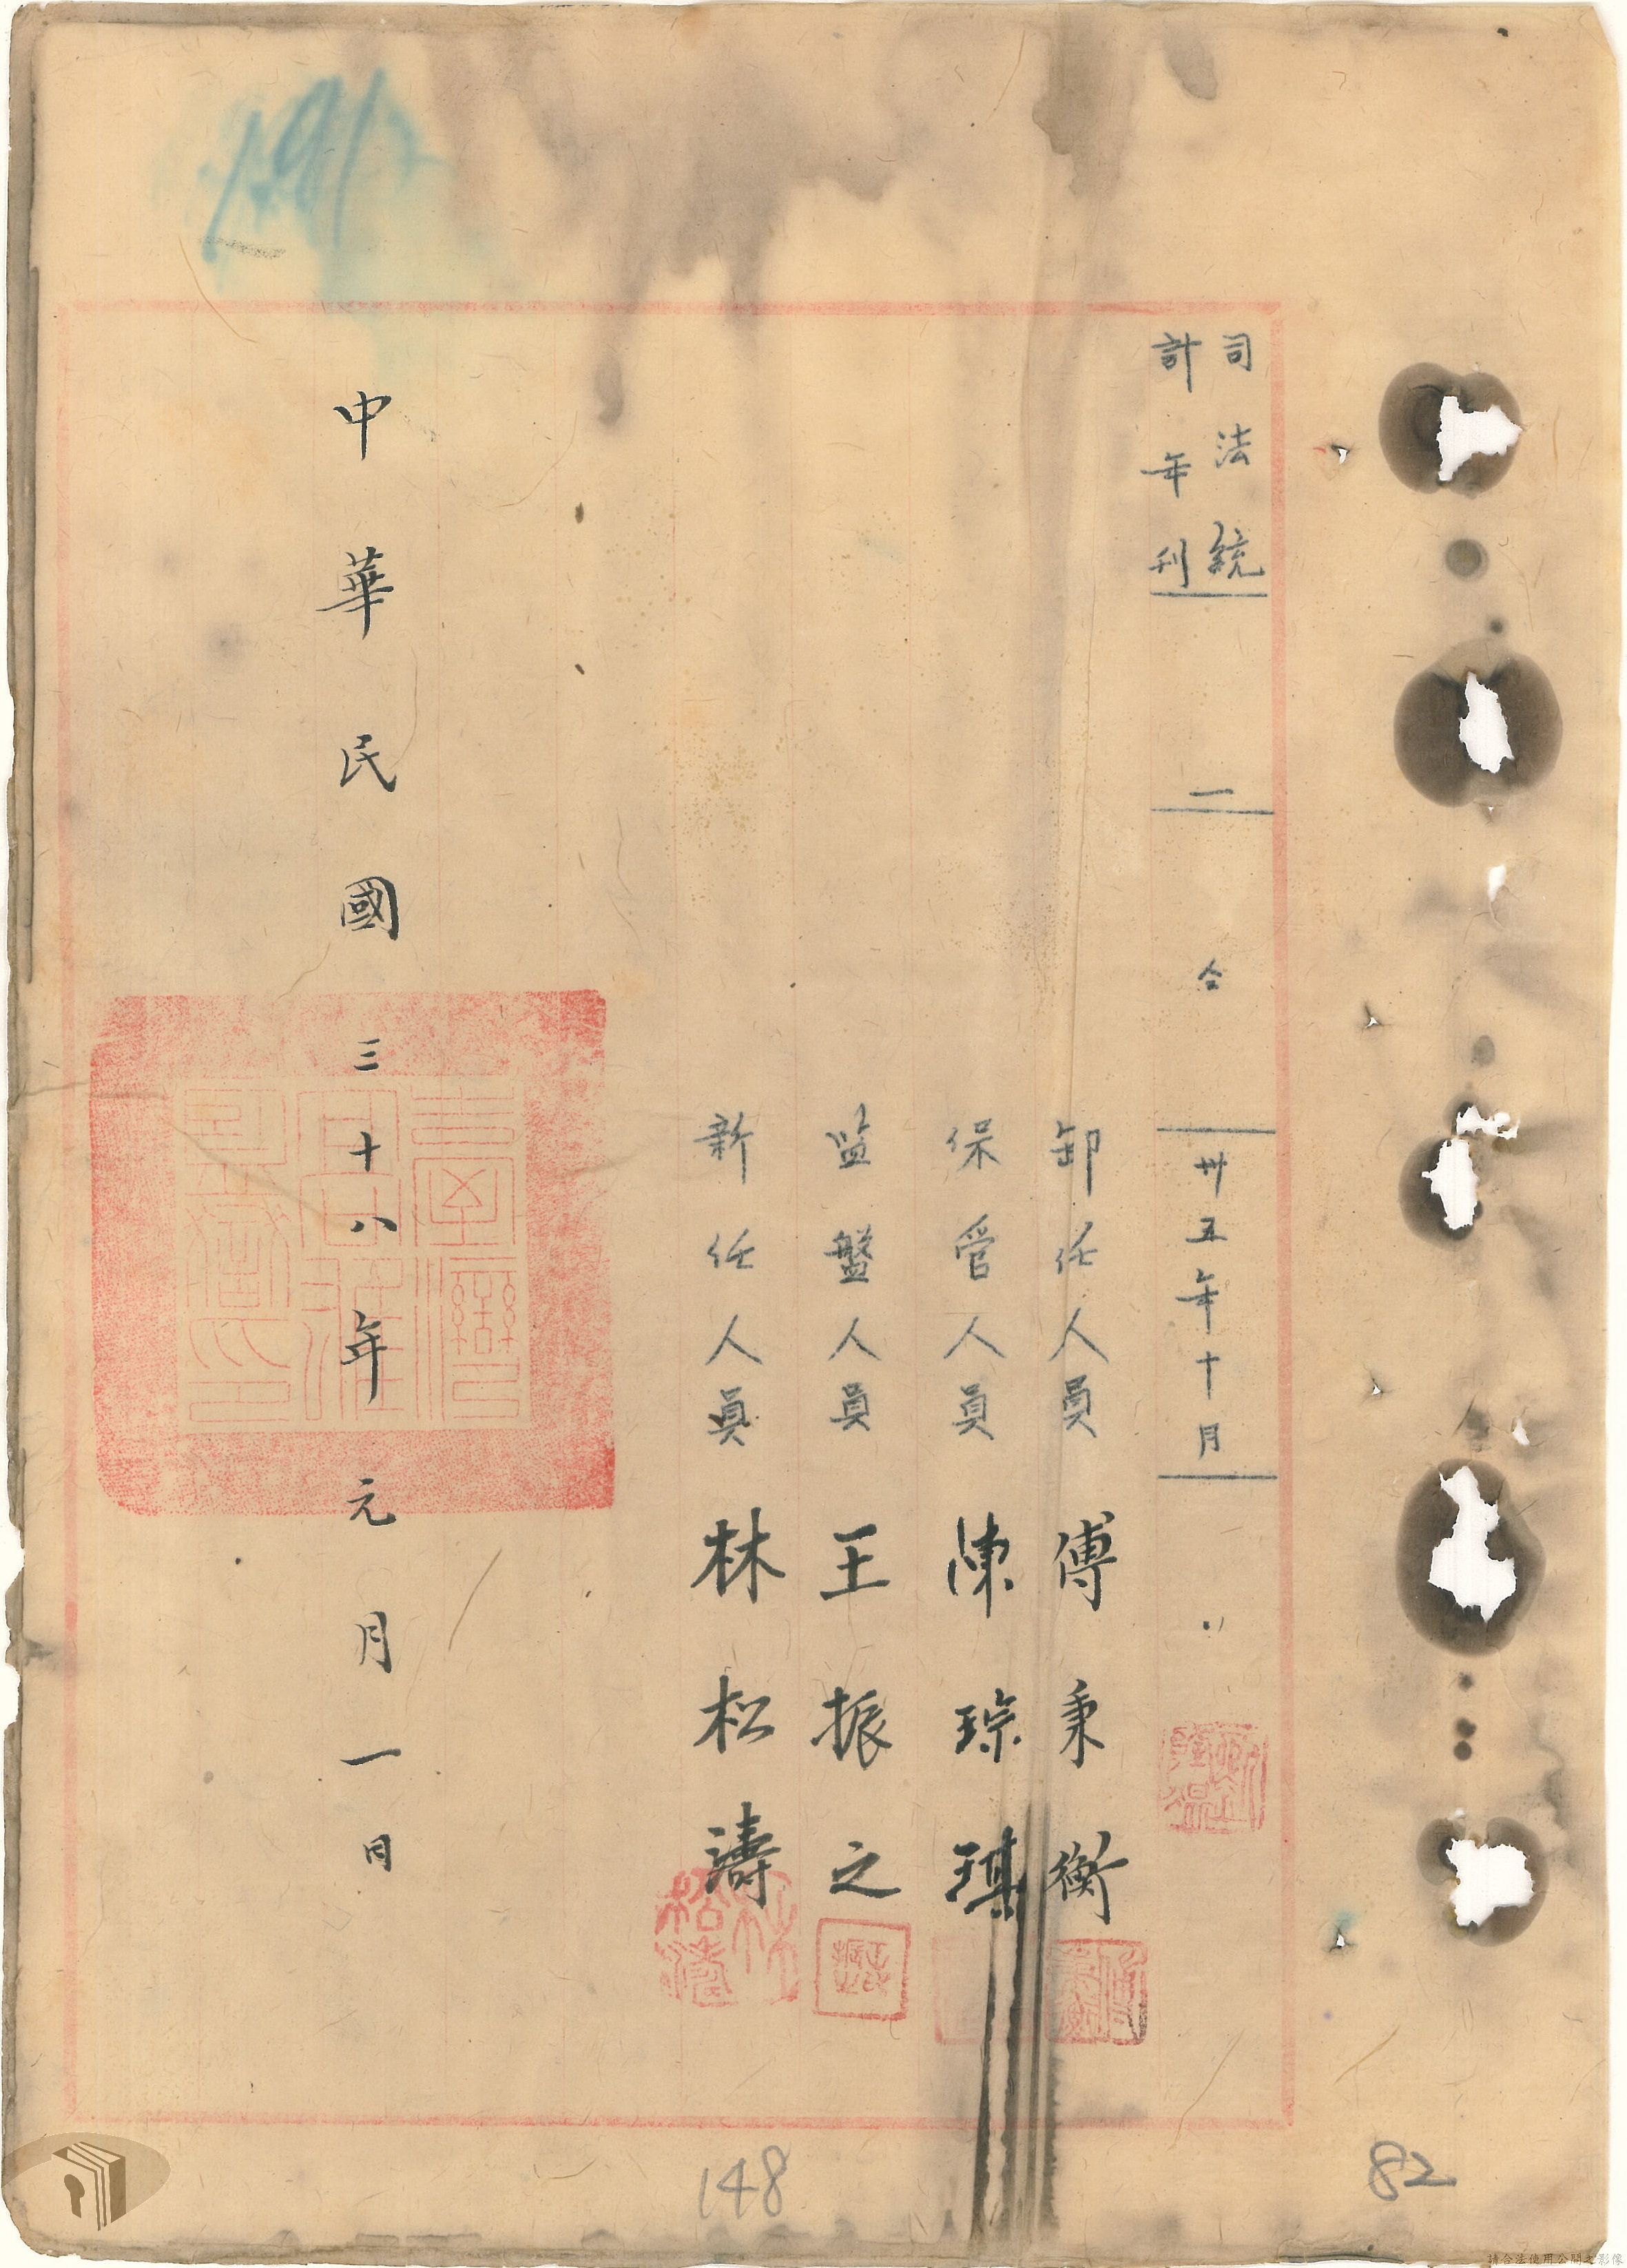 司法統
計年刊
一
仝
卅五年十月
〃
卸任人員 傅秉衡
保管人員 陳琮琪
監盤人員 王振之
新任人員 林松濤
中華民國三十八年元月一日
148
82
請合法使用公開之影像